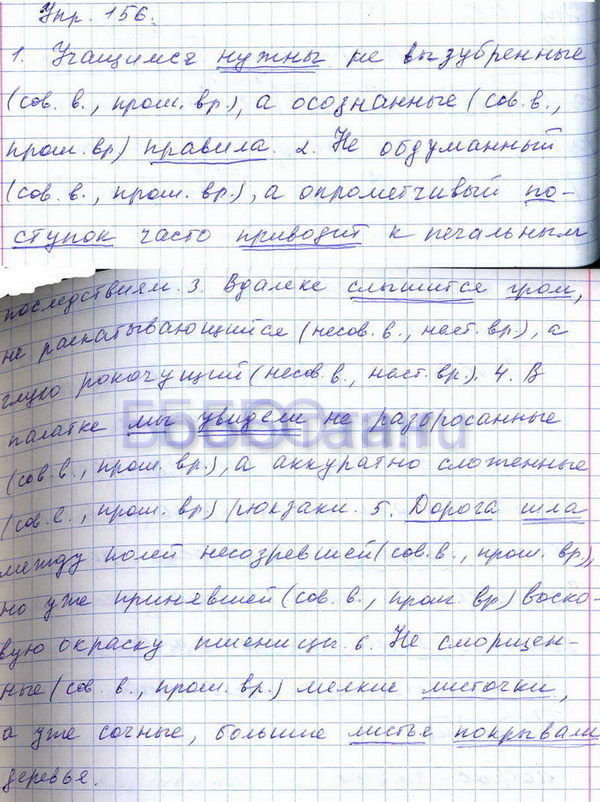 Упр. 156.
1. Учащимся нужны не вызубренные
(сов. в., прош. вр.), а осознанные (сов. в.,
прош. вр) правила. 2. Не обдуманный
(сов. в., прош. вр.), а опрометчивый по-
ступок часто приводит к печальным
последствиям. 3. Вдалеке слышится гром,
не раскатывающийся (несов. в., наст. вр.), а
глухо рокочущий (несов. в., наст. вр.). 4. В
палатке мы увидели не разбросанные
(сов. в., прош. вр.), а аккуратно сложенные
(сов. в., прош. вр) рюкзаки. 5. Дорога шла
между полей несозревшей (сов. в., прош. вр),
но уже принявшей (сов. в., прош. вр) воско-
вую окраску пшеницы. 6. Не сморщен-
ные (сов. в., прош. вр.) мелкие листочки,
а уже сочные, большие листья покрывали
деревья.